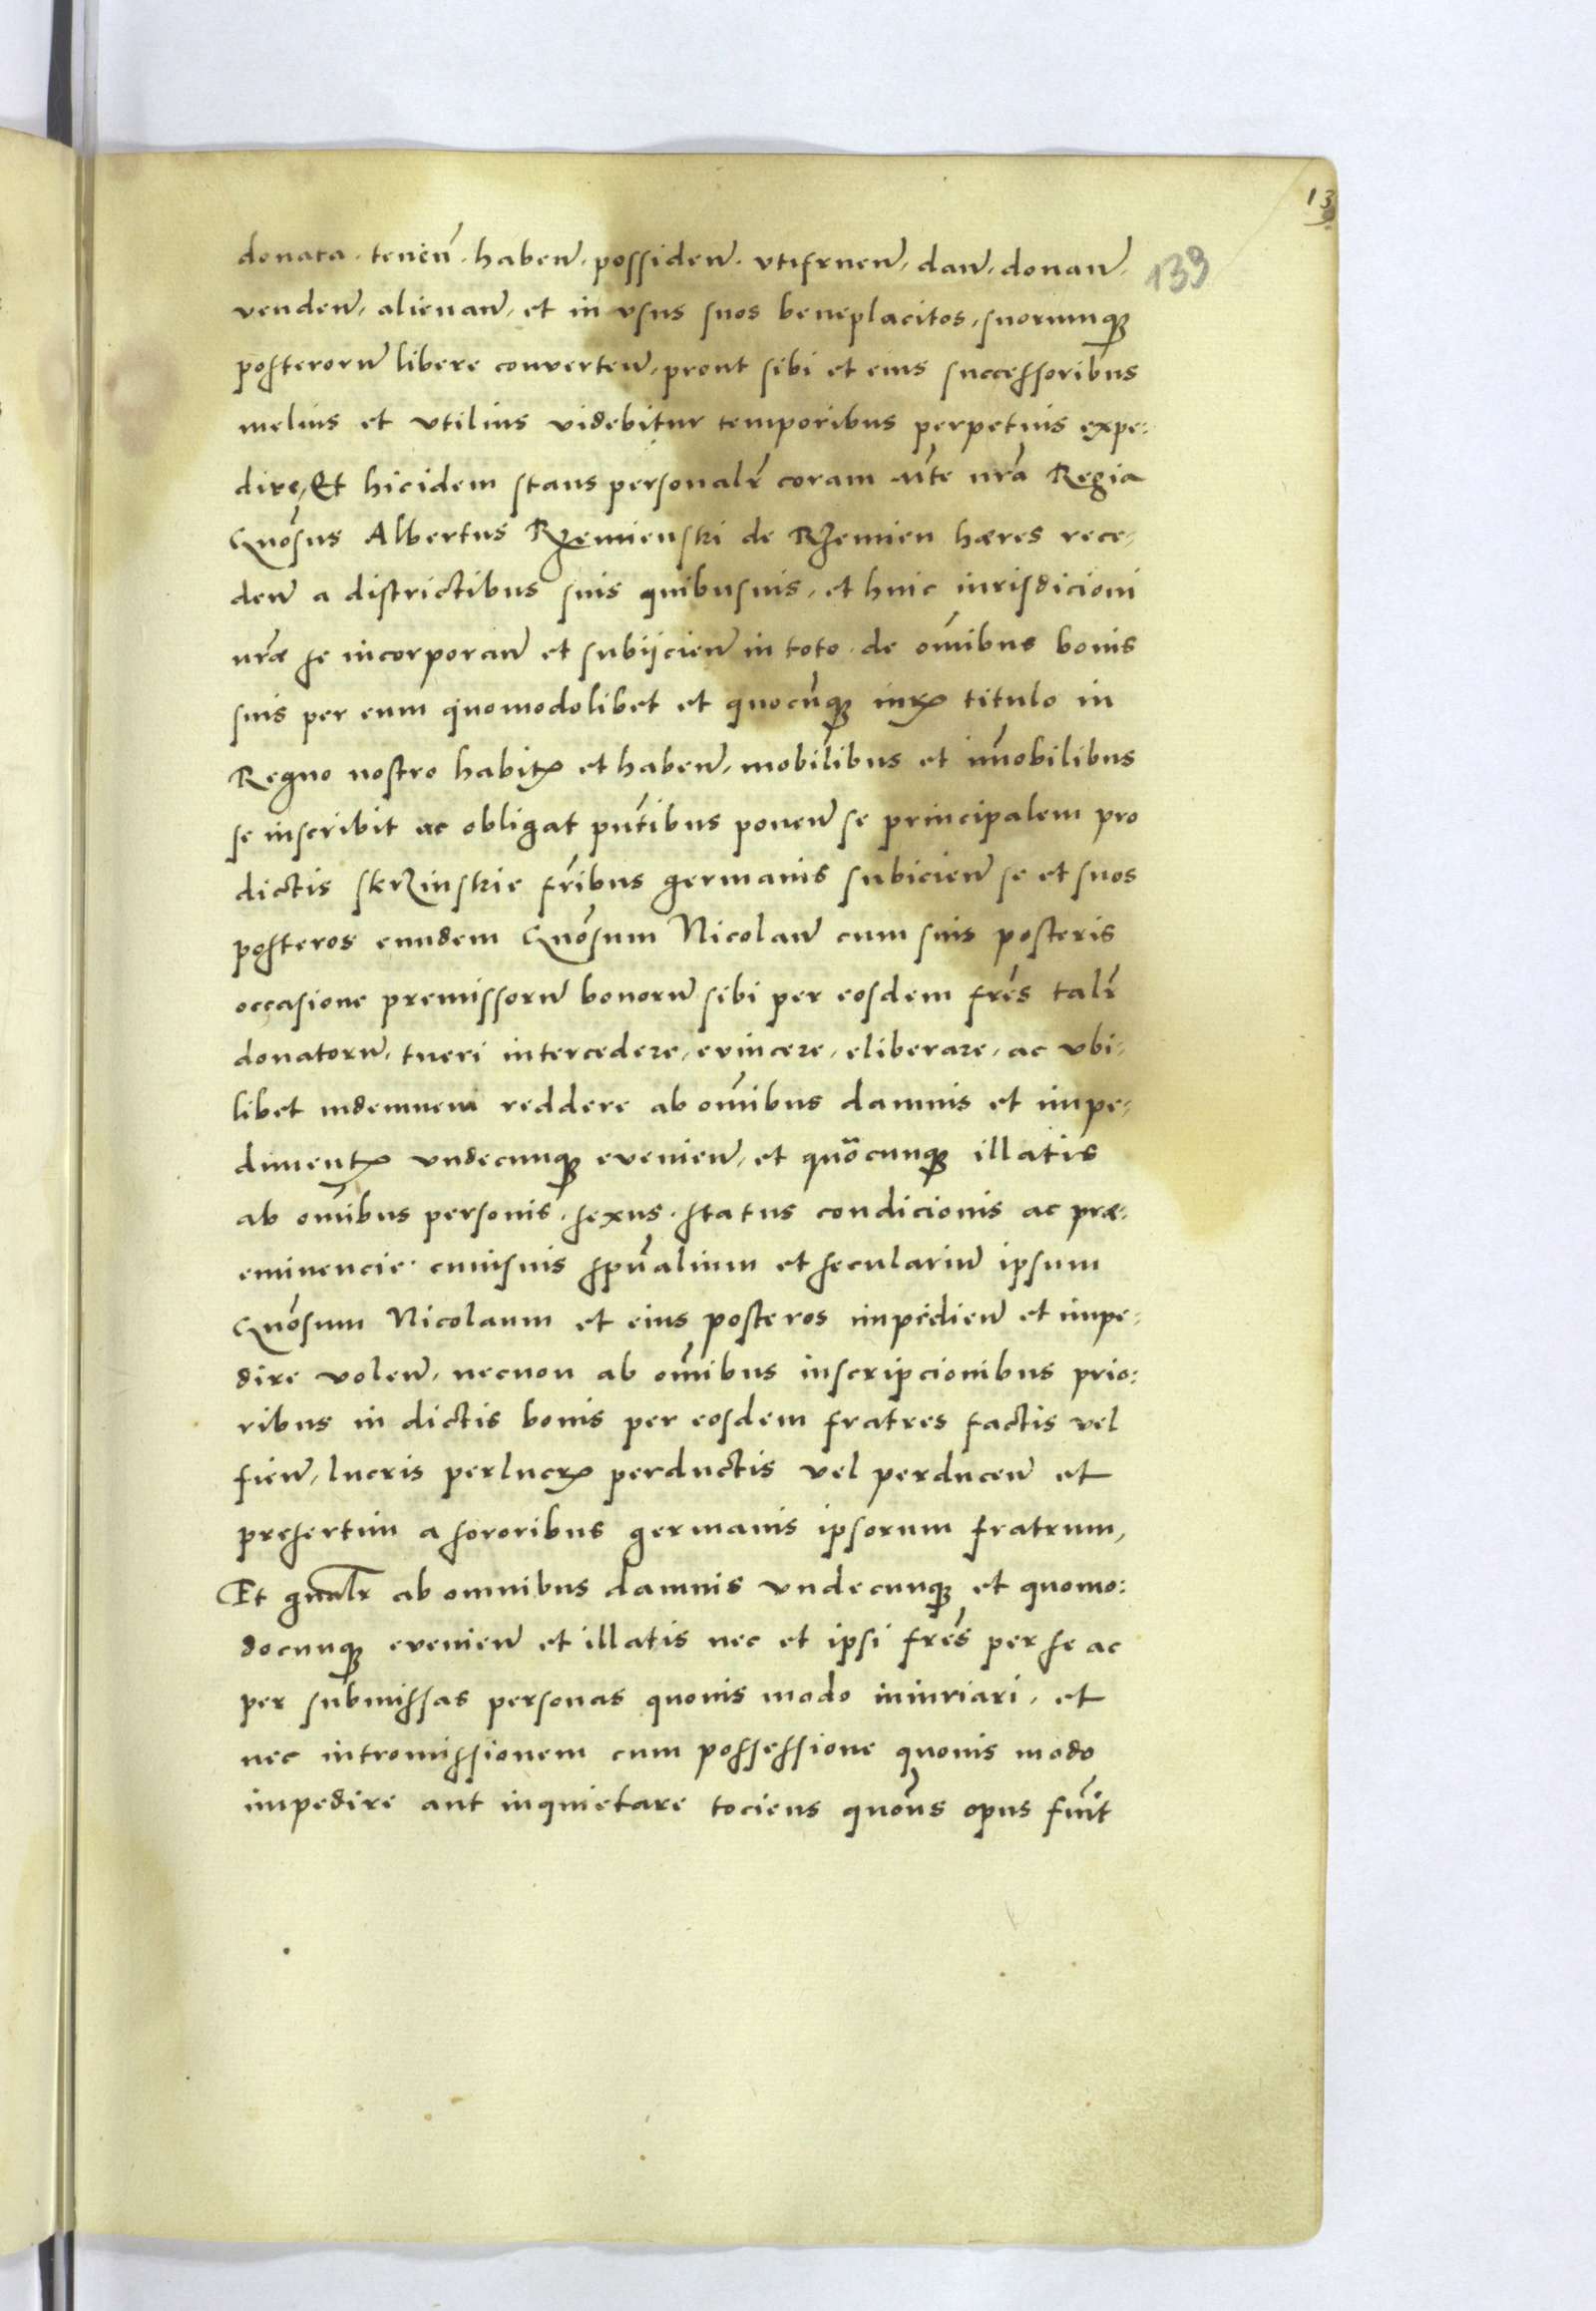 13
139
donata. teneñ. habeñ. possideñ. vtifrueñ, dañ, donañ,
vendeñ, alienañ, et in vsus suos beneplacitos, suorumq3
posterorũ libere converteñ, prout sibi et eius successoribus
melius et vtilius videbitur temporibus perpetuis expe:
dire, Et hicidem stans personalr̃ coram Mte nrã Regia
Gnõsus Albertus Rzemienski de Rzemien hæres rece,
deñ a districtibus suis quibusuis, et huic iurisdicioni
nræ se incorporañ et subijcieñ in toto. de om̃ibus bonis
suis per eum quomodolibet et quocũq3 iurꝭ titulo in
Regno nostro habitꝭ et habeñ, mobilibus et im̃obilibus
se inscribit ac obligat pñtibus poneñ se principalem pro
dictis skrzinskie frĩbus germanis subicieñ se et suos
posteros eundem Gnõsum Nicolaũ cum suis posteris
occasione premissorũ bonorũ sibi per eosdem frẽs talr̃
donatorũ, tueri intercedere, evincere, eliberare, ac vbi,
libet indemnem reddere ab om̃ibus damnis et impe,
dimentꝭ vndecunq3 evenieñ, et quõcunq3 illatis
ab om̃ibus personis. sexus. status condicionis ac præ,
eminencie. cuiusuis spũalium et seculariũ ipsum
Gnõsum Nicolaum et eius posteros impedieñ et impe,
dire voleñ, necnon ab om̃ibus inscripcionibus prio:
ribus in dictis bonis per eosdem fratres factis vel
fieñ, lucris perlucrꝭ perductis vel perduceñ et
presertim a sororibus germanis ipsorum fratrum,
Et gñalr̃ ab omnibus damnis vndecunq3 et quomo:
docunq3 evenieñ et illatis nec et ipsi frẽs per se ac
per submissas personas quouis modo iniuriari, et
nec intromissionem cum possessione quouis modo
impedire aut inquietare tociens quoñs opus fuĩt